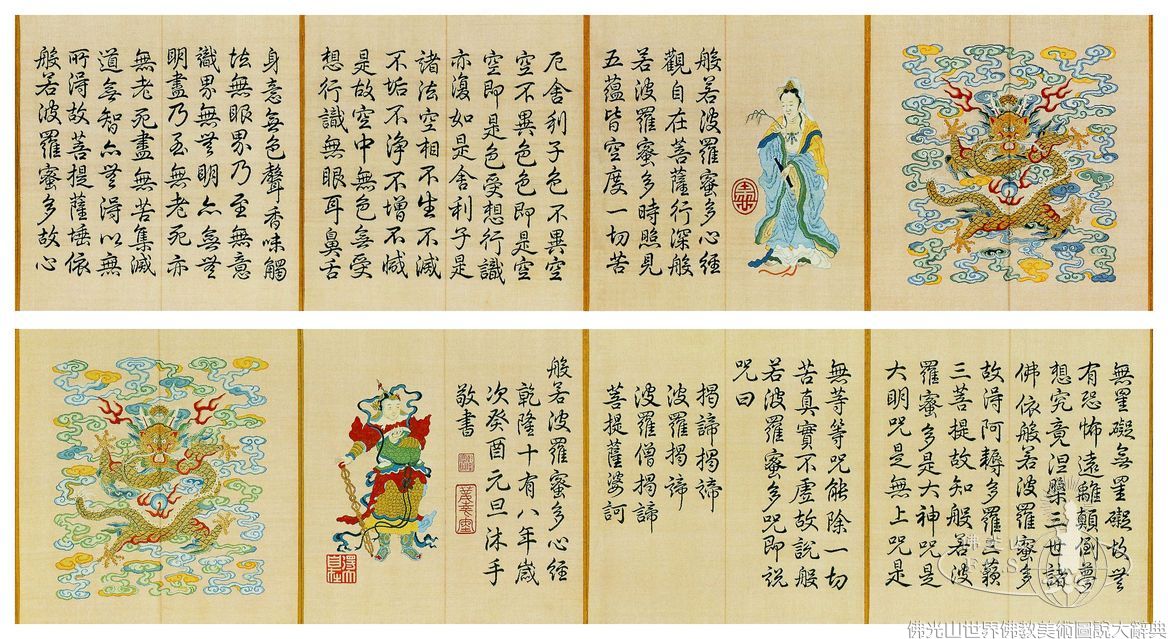 般若波羅蜜多心經
觀自在菩薩行深般
若波羅蜜多時照見
五蘊皆空度一切苦
厄舍利子色不異空
空不異色色即是空
空即是色受想行識
亦復如是舍利子是
諸法空相不生不滅
不垢不淨不增不減
是故空中無色無受
想行識無眼耳鼻舌
身意無色聲香味觸
法無眼界乃至無意
識界無無明亦無無
明盡乃至無老死亦
無老死盡無苦集滅
道無智亦無得以無
所得故菩提薩埵依
般若波羅蜜多故心
無罣礙無罣礙故無
有恐怖遠離顛倒夢
想究竟涅槃三世諸
佛依般若波羅蜜多
故得阿耨多羅三藐
三菩提故知般若波
羅蜜多是大神咒是
大明咒是無上咒是
無等等咒能除一切
苦真實不虛故說般
若波羅蜜多咒即說
咒曰
揭諦揭諦
波羅揭諦
波羅僧揭諦
菩提薩婆訶
般若波羅蜜多心經
乾隆十有八年歲
次癸酉元旦沐手
敬書
佛光山世界佛教美術圖說大辭典